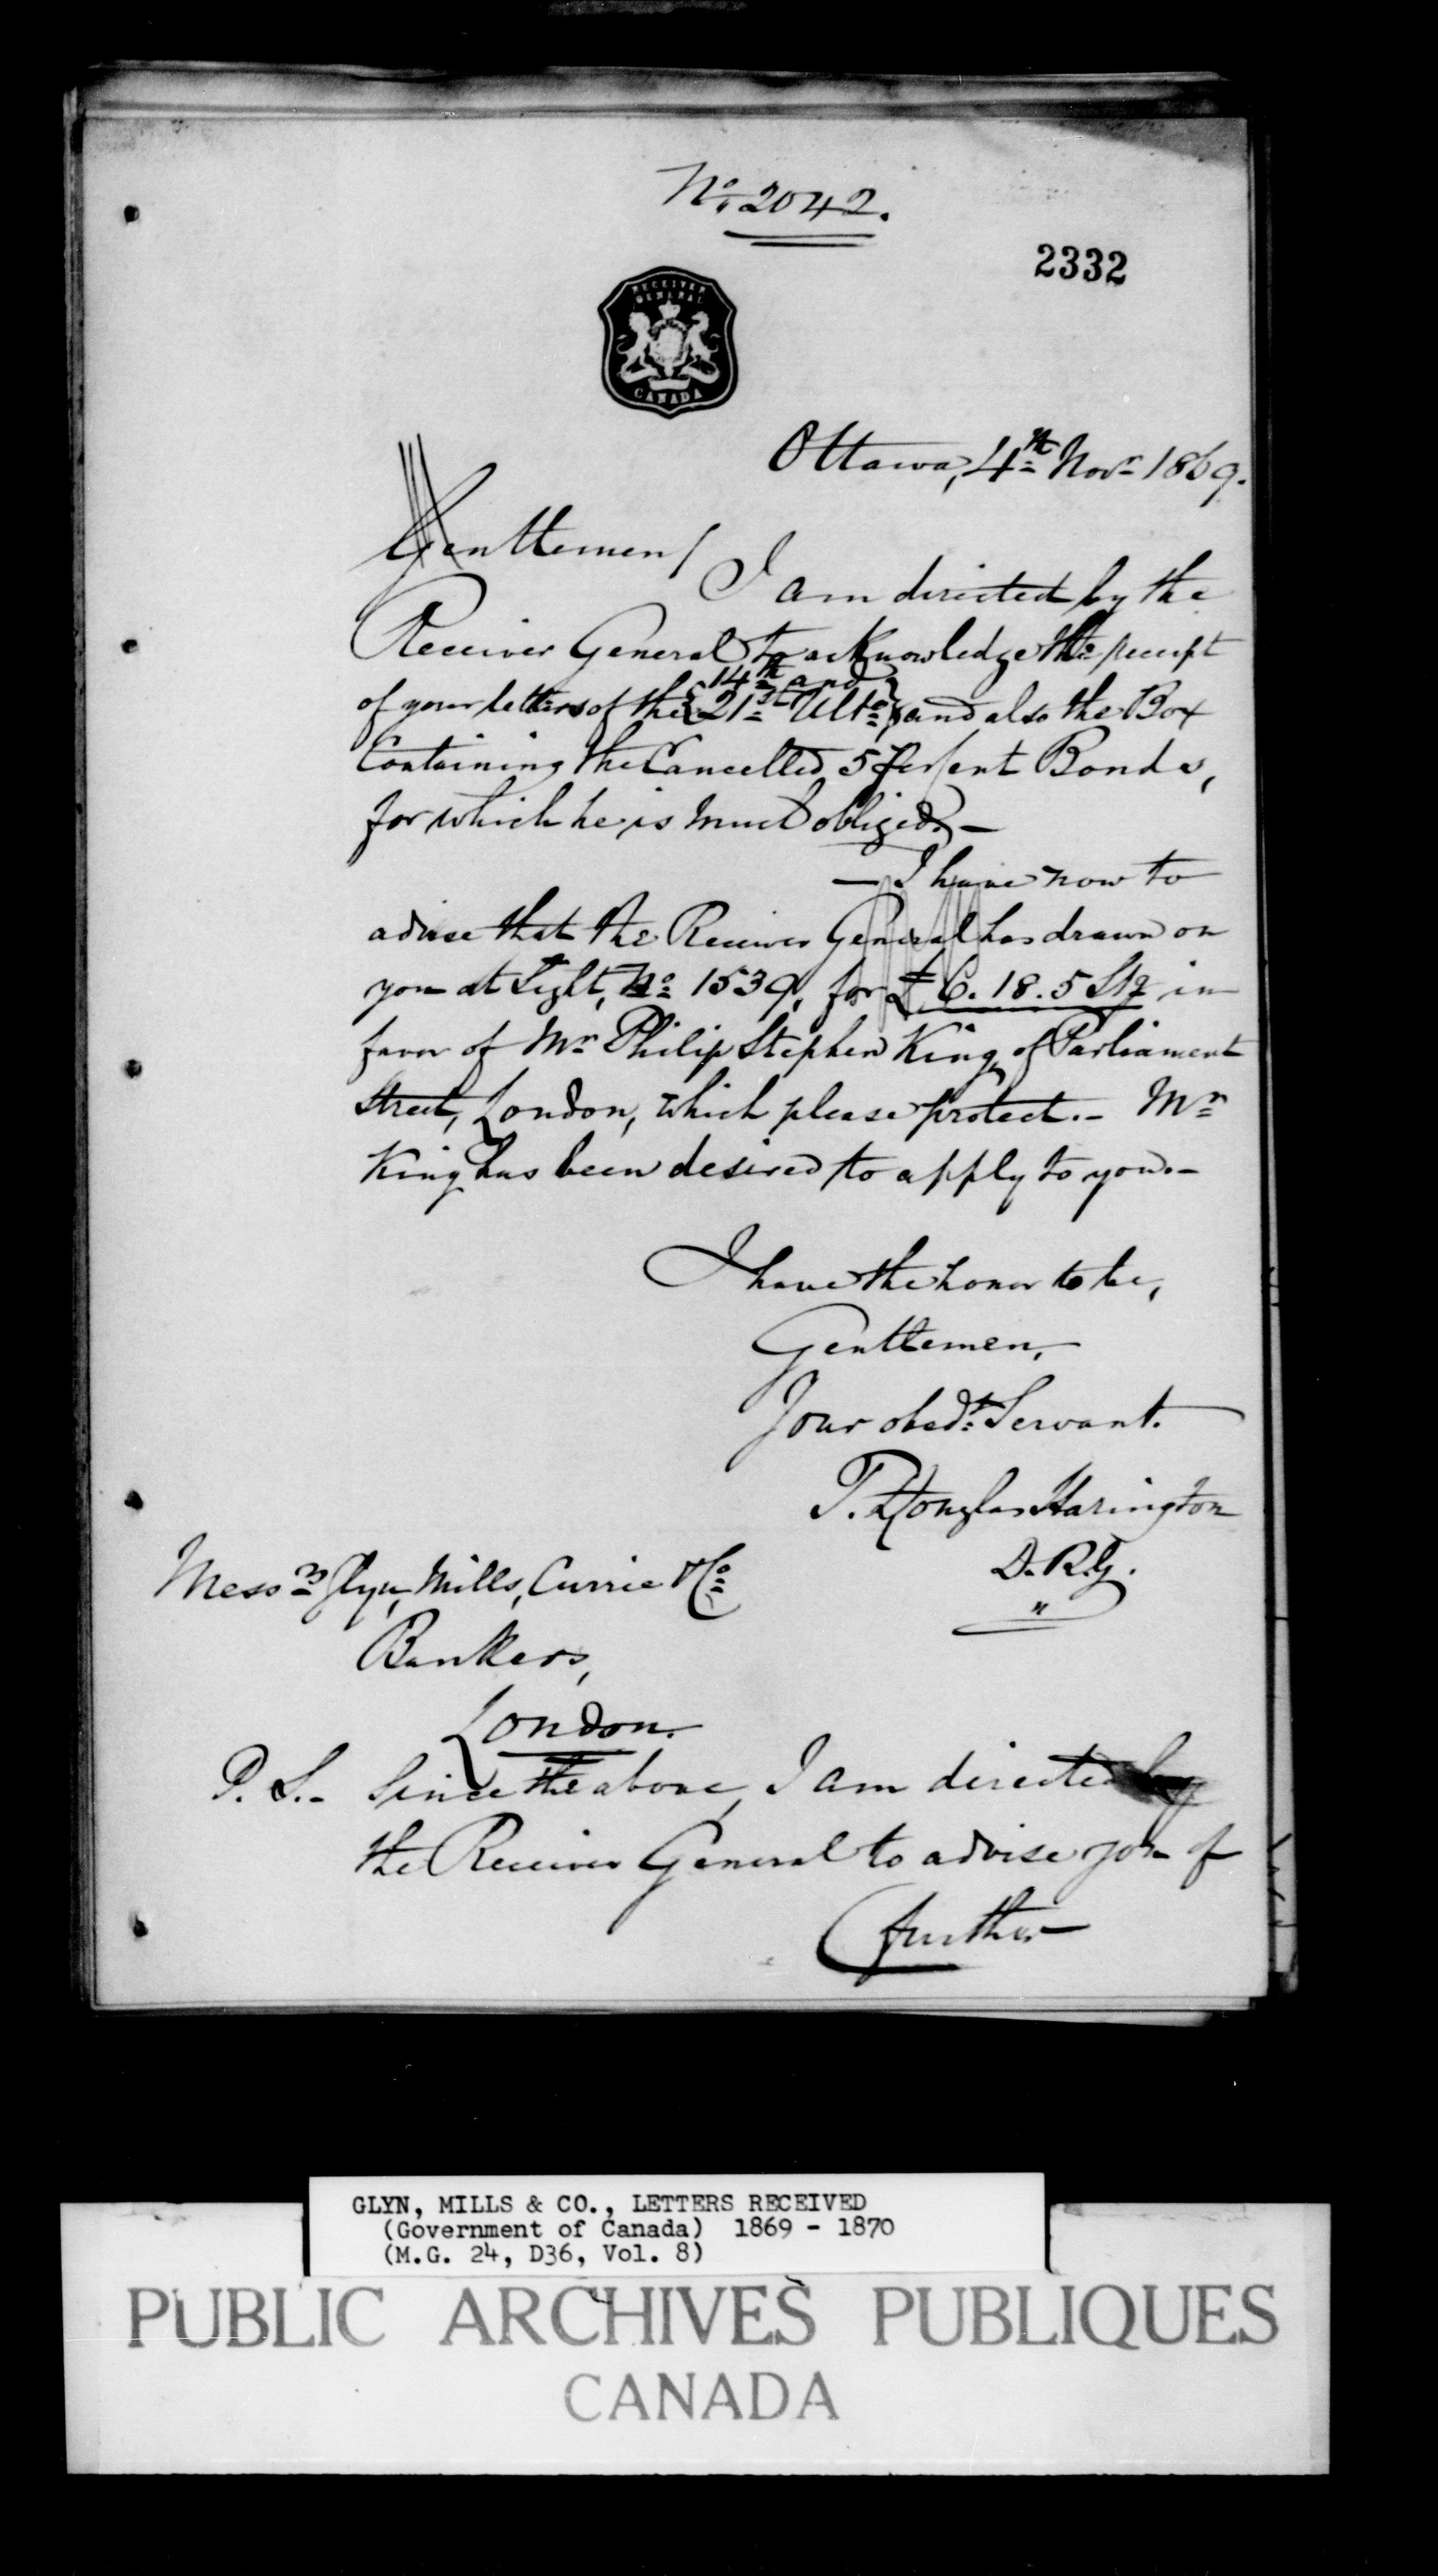 No. 2042.
2332
RECEIVER
GENERAL
CANADA
Ottawa, 4th Novr 1869.
Gentlemen/
I am directed by the
Receiver General to acknowledge the receipt
of your letters of the {14th and 21st Ulto} and also the Box
Containing the Cancelled 5 per Cent Bonds,
for which he is much obliged. —
— I have now to
advise that the Receiver General has drawn on
you at Sight, No 1539, for £6.18.5 Stg in
favor of Mr Philip Stephen King of Parliament
Street, London, which please protect. — Mr
King has been desired to apply to you. —
I have the honor to be,
Gentlemen,
Your obedt Servant.
T. Douglas Harington
D.R.G.
Messrs Glyn, Mills, Currie & Co
Bankers,
London.
P.S. — Since the above, I am directed by
the Receiver General to advise you of
further
GLYN, MILLS & CO., LETTERS RECEIVED
(Government of Canada) 1869 - 1870
(M.G. 24, D36, Vol. 8)
PUBLIC ARCHIVES PUBLIQUES
CANADA